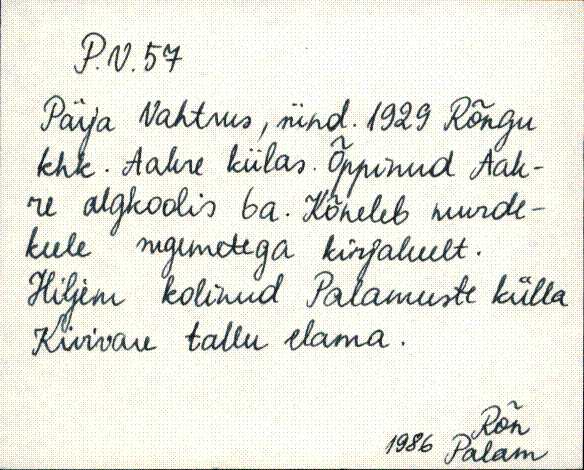 P.V. 57
Päija Vahtrus, sünd. 1929 Rõngu
khk. Aakre külas. Õppinud Aak-
re algkoolis 6a. Kõneleb murde-
keele sugemetega kirjakeelt.
Hiljem kolinud Palamuste külla
Kivivare tallu elama.
Rõn
1986 Palam